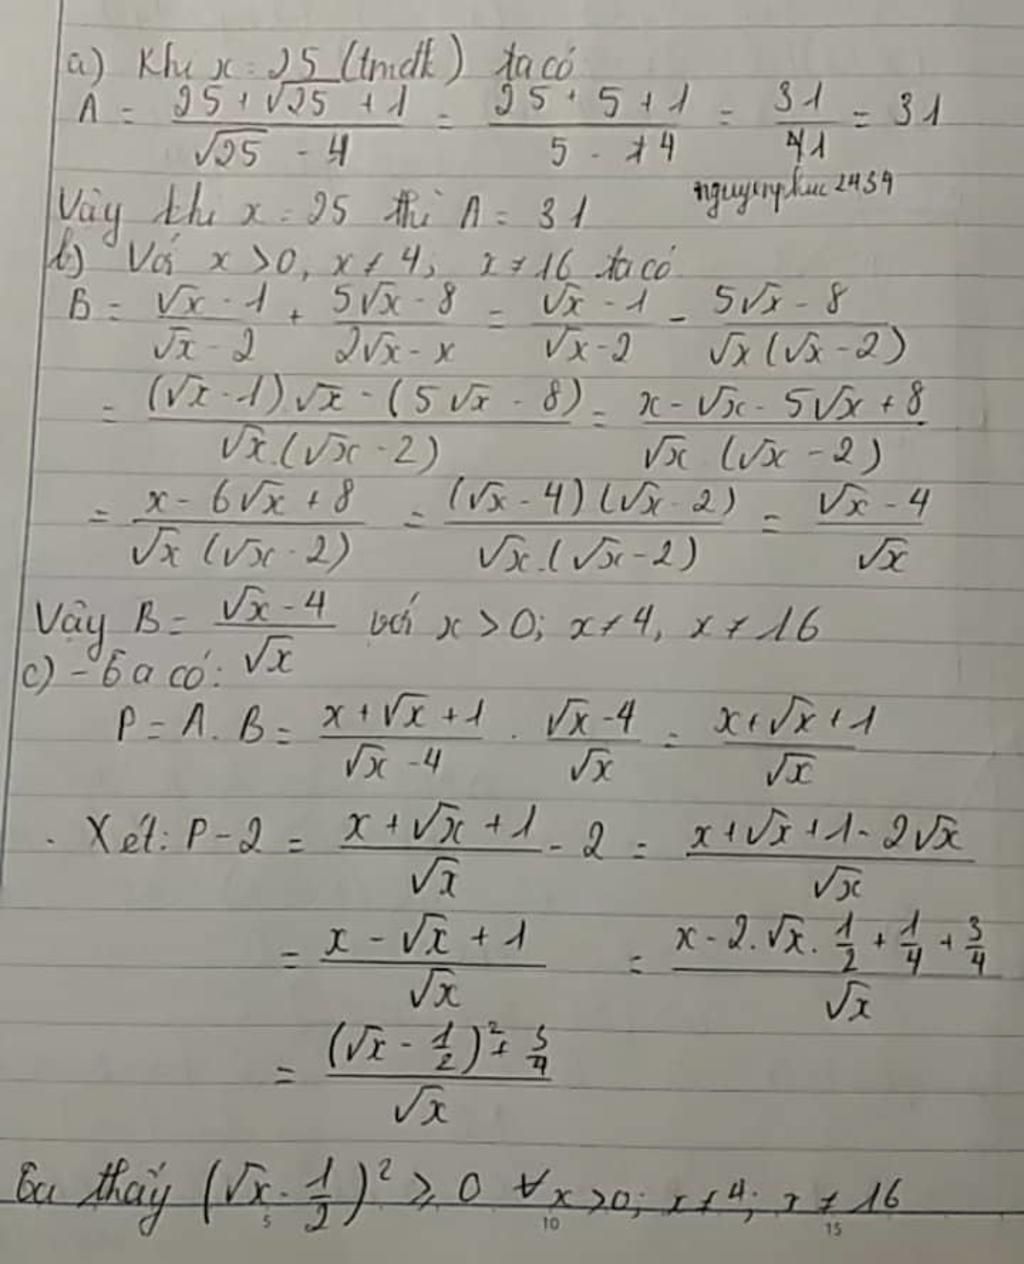 a) Khi x = 25 (tmđk) ta có
A = (25 + √25 + 1)/(√25 - 4) = (25 + 5 + 1)/(5 - 4) = 31/1 = 31
nguyenphuc2434
Vậy khi x = 25 thì A = 31
b) Với x > 0, x ≠ 4, x ≠ 16 ta có
B = (√x - 1)/(√x - 2) + (5√x - 8)/(2√x - x) = (√x - 1)/(√x - 2) - (5√x - 8)/(√x (√x - 2))
= ((√x - 1)√x - (5√x - 8))/(√x.(√x - 2)) = (x - √x - 5√x + 8)/(√x (√x - 2))
= (x - 6√x + 8)/(√x (√x - 2)) = ((√x - 4)(√x - 2))/(√x.(√x - 2)) = (√x - 4)/√x
Vậy B = (√x - 4)/√x với x > 0; x ≠ 4, x ≠ 16
c) - Ta có:
P = A. B = (x + √x + 1)/(√x - 4) . (√x - 4)/√x = (x + √x + 1)/√x
. Xét: P - 2 = (x + √x + 1)/√x - 2 = (x + √x + 1 - 2√x)/√x
= (x - √x + 1)/√x = (x - 2.√x. 1/2 + 1/4 + 3/4)/√x
= ((√x - 1/2)² + 3/4)/√x
Ta thấy (√x - 1/2)² ≥ 0 ∀x > 0; x ≠ 4; x ≠ 16
5 10 15